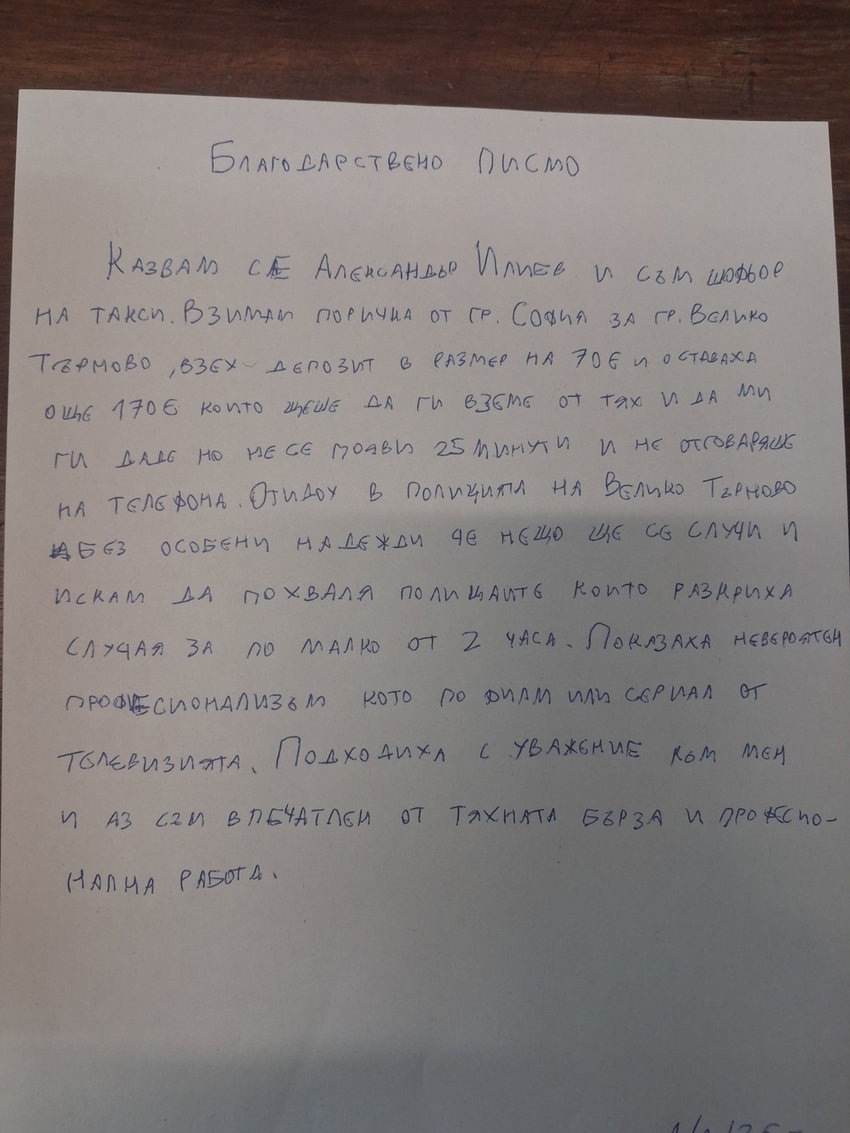 Благодарствено писмо
Казвам се Александър Илиев и съм шофьор
на такси. Взимам поричка от гр. София за гр. Велико
Търново, взех депозит в размер на 70€ и оставаха
още 170€ които щеше да ги вземе от тях и да ми
ги даде но не се появи 25 минути и не отговаряше
на телефона. Отидох в полицията на Велико Търново
без особени надежди че нещо ще се случи и
искам да похваля полицаите които разкриха
случая за по малко от 2 часа. Показаха невероятен
професионализъм кото по филм или сериал от
телевизията. Подходиха с уважение към мен
и аз съм впечатлен от тяхната бърза и професио-
нална работа.